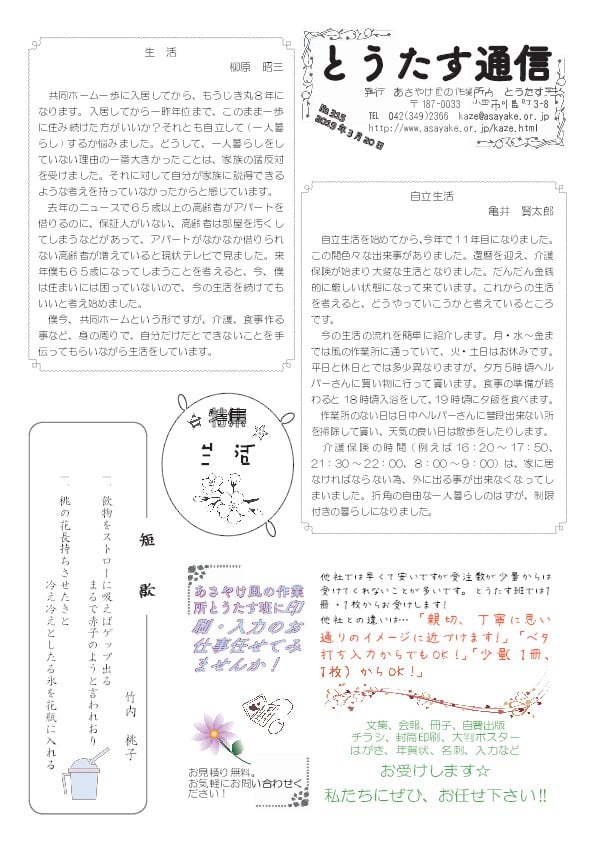 とうたす通信
発行　あさやけ風の作業所内　とうたす班
〒187-0033　小平市小川町3-8
TEL　042(349)2366　kaze@asayake.or.jp
http://www.asayake.or.jp/kaze.html
2019年3月20日
生　活
柳原　昭三
共同ホーム一歩に入居してから、もうじき丸８年に
なります。入居してから一昨年位まで、このまま一歩
に住み続けた方がいいか？それとも自立して（一人暮
らし）するか悩みました。どうして、一人暮らしをし
ていない理由の一番大きかったことは、家族の猛反対
を受けました。それに対して自分が家族に説得できる
ような考えを持っていなかったからと感じています。
去年のニュースで６５歳以上の高齢者がアパートを
借りるのに、保証人がいない、高齢者は部屋を汚くし
てしまうなどがあって、アパートがなかなか借りられ
ない高齢者が増えていると現状テレビで見ました。来
年僕も６５歳になってしまうことを考えると、今、僕
は住まいには困っていないので、今の生活を続けても
いいと考え始めました。
僕今、共同ホームという形ですが、介護、食事作る
事など、身の周りで、自分だけだとできないことを手
伝ってもらいながら生活をしています。
自立生活
亀井　賢太郎
自立生活を始めてから、今年で１１年目になりました。
この間色々な出来事がありました。還暦を迎え、介護
保険が始まり大変な生活となりました。だんだん金銭
的に厳しい状態になって来ています。これからの生活
を考えると、どうやっていこうかと考えているところ
です。
今の生活の流れを簡単に紹介します。月・水～金ま
では風の作業所に通っていて、火・土日はお休みです。
平日と休日とでは多少異なりますが、夕方５時頃ヘル
パーさんに買い物に行って貰います。食事の準備が終
わると18時頃入浴をして、19時頃に夕飯を食べます。
作業所のない日は日中ヘルパーさんに普段出来ない所
を掃除して貰い、天気の良い日は散歩をしたりします。
介護保険の時間（例えば16：20～17：50、
21：30～22：00、8：00～9：00）は、家に居
なければならない為、外に出る事が出来なくなってし
まいました。折角の自由な一人暮らしのはずが、制限
付きの暮らしになりました。
特集
生活
短　歌
竹内　桃子
一、飲物をストローに吸えばゲップ出る
まるで赤子のようと言われおり
一、桃の花長持ちさせたきと
冷え冷えとしたる水を花瓶に入れる
あさやけ風の作業
所とうたす班に印
刷・入力のお
仕事任せてみ
ませんか！
お見積り無料。
お気軽にお問い合わせく
ださい！
他社では早くて安いですが受注数が少量からは
受けてくれないことが多いです。とうたす班では1
冊・1枚からお受けします！
他社との違いは…「親切、丁寧に思い
通りのイメージに近づけます！」「ベタ
打ち入力からでもOK！」「少量（1冊、
1枚）からOK！」
文集、会報、冊子、自費出版
チラシ、封筒印刷、大判ポスター
はがき、年賀状、名刺、入力など
お受けします☆
私たちにぜひ、お任せ下さい!!